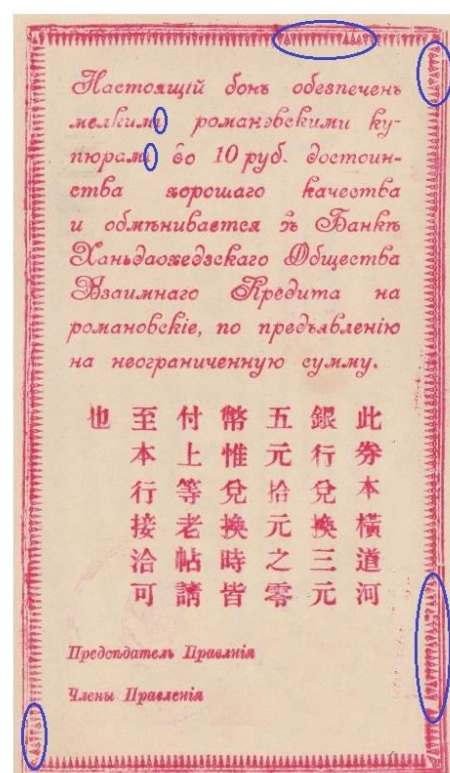 Настоящій бонъ обезпеченъ
мелкими романовскими ку-
пюрами до 10 руб. достоин-
ства хорошаго качества
и обмѣнивается въ Банкѣ
Ханьдаохедзскаго Общества
Взаимнаго Кредита на
романовскіе, по предъявленію
на неограниченную сумму.
此券本橫道河
銀行兌換三元
五元拾元之零
幣惟兌換時皆
付上等老帖請
至本行接洽可
也
Предсѣдатель Правлнія
Члены Правленія